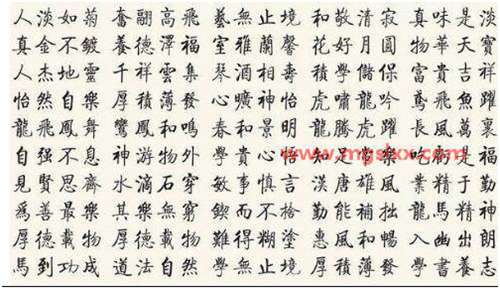 人淡如菊 奮翮高飛 藝無止境 和敬清寂 真味是淡
真金不鍍 養德澤福 室雅蘭馨 花好月圓 物華天寶
人杰地靈 千祥雲集 琴 相壽 學儲 富貴吉祥
怡然自樂 厚積薄發 心曠神怡 虎嘯龍吟 鳶飛魚躍
龍飛鳳舞 鸞鳳和鳴 春和景明 龍騰虎躍 長風萬裏
自强不息 神游物外 貴心 知足 樂 是福
見賢思齊 水滴石穿 敏事慎言 漢唐雄風 業精于勤
爲善最樂 其樂無窮 鍥而不捨 勤能補拙 龍馬精神
厚德載物 厚德載物 難得糊塗 惠風和暢 入幽出朗
馬到功成 道法自然 學無止境 厚積薄發 學書養志